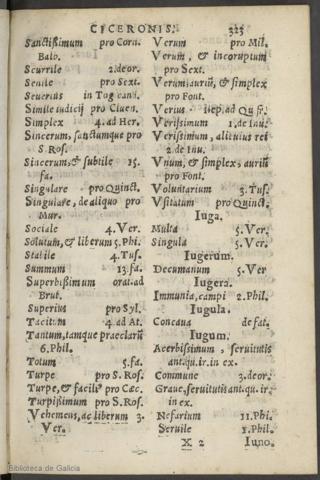 CICERONIS. 323
Sanctißimum pro Corn.
Balo.
Scurrile 2.de or.
Senile pro Sext.
Seuerius in Tog cand.
Simile iudicij pro Cluen.
Simplex 4. ad Her.
Sincerum, sanctumque pro
S. Ros.
Sincerum, & subtile 15.
fa.
Singulare pro Quinct.
Singulare, de aliquo pro
Mur.
Sociale 4. Ver.
Solutum, & liberum 5. Phi.
Stabile 4. Tus.
Summum 13. fa.
Superbißimum orat. ad
Brut.
Superius pro Syl.
Tacitum 4. ad At.
Tantum, tamque præclarū
6. Phil.
Totum 5. fa.
Turpe pro S. Ros.
Turpe, & facile pro Cæc.
Turpißimum pro S. Ros.
Vehemens, ac liberum 3.
Ver.
Verum pro Mil.
Verum, & incorruptum
pro Sext.
Verum auriū, & simplex
pro Font.
Verius ad Qu fr.
Verissimum 1. de Inu.
Verissimum, alicuius rei
2. de Inu.
Vnum, & simplex, auriū
pro Font.
Voluntarium 3. Tus.
Vsitatum pro Quinct.
Iuga.
Multa 5. Ver.
Singula 5. Ver.
Iugerum.
Decumanum 5. Ver
Iugera.
Immunia, campi 2. Phil.
Iugula.
Concaua de fat.
Iugum.
Acerbissimum, seruitutis
ant. qu. ir. in ex.
Commune 3. de or.
Graue, seruitutis ant. qu. ir.
in ex.
Nefarium 11. Phi.
Seruile 1. Phil.
X 2 Iuno.
Biblioteca de Galicia